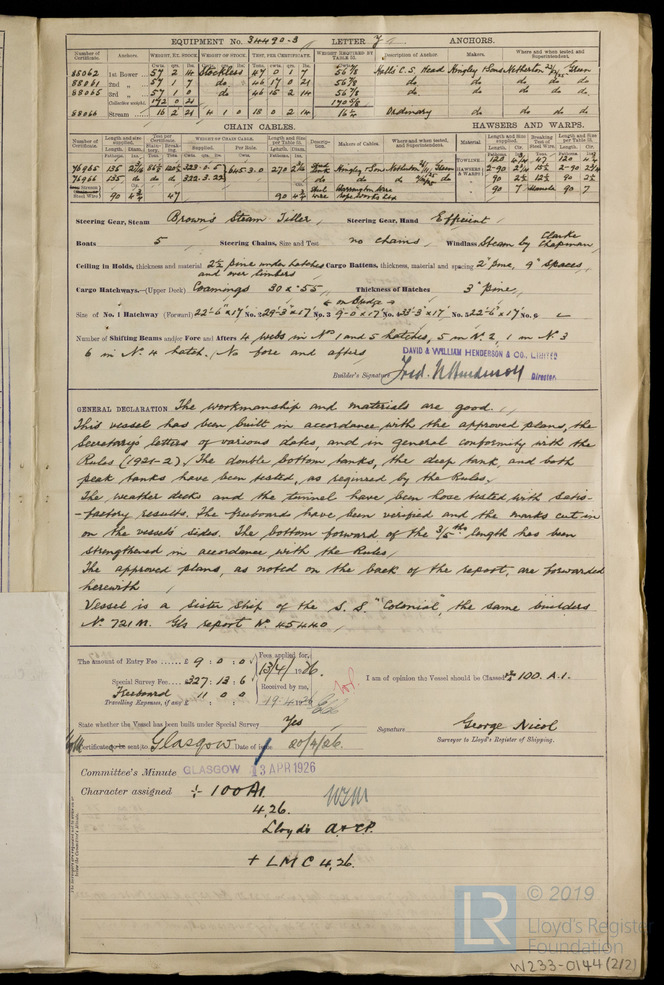 EQUIPMENT No. 34490-3 LETTER ANCHORS.
Number of Certificate. Anchors. WEIGHT, EX. STOCK. WEIGHT OF STOCK. TEST, PER CERTIFICATE. WEIGHT REQUIRED BY TABLE 22. Description of Anchor. Makers. Where and when tested and Superintendent.
85062 1st Bower 57 2 14 Stockless 47 0 1 7 56¾ Hall's C.S. Head Hingley & Sons Netherton
85061 2nd „ 57 1 7 do 46 17 0 21 56¾ do do do
85065 3rd „ 57 1 0 do 46 15 2 14 56¾ do do do
Collective weight 172 0 21
85066 Stream 16 2 21 4 1 0 18 0 2 14 Ordinary do do
CHAIN CABLES. HAWSERS AND WARPS.
Number of Certificate. Length and size supplied. Test per Certificate. WEIGHT OF CHAIN CABLE. Length and Size per Table 22. Description. Makers of Cables. Where and when tested, and Superintendent. Material Length and Size supplied. Breaking Test of Steel Wire. Length and Size per Table 22.
76965 135 323.0.5 645.3.0 270 Hingley & Sons Netherton
76966 135 do do do 322.3.22 do do do
90 47 90 Steel wire
TOWLINE 120 47 120
HAWSERS & WARPS 2-90 2-90
90 90
90 7 Manila 90 7
Steering Gear, Steam Brown's Steam Tiller Steering Gear, Hand Efficient
Boats 5 Steering Chains, Size and Test no chains Windlass Steam by Clarke Chapman
Ceiling in Holds, thickness and material 2½ pine under hatches and over limbers Cargo Battens, thickness, material and spacing 2" pine, 9" spaces
Cargo Hatchways.—(Upper Deck) Coamings 30 x .55 Thickness of Hatches 3" Pine
Size of No. 1 Hatchway (Forward) 22'-6" x 17' No. 2 29'-3" x 17' No. 3 9'-0" x 17' No. 4 33'-3" x 17' No. 5 22'-6" x 17' No. 6
Number of Shifting Beams and/or Fore and Afters 4 webs in Nos 1 and 5 hatches, 5 in No. 2, 1 in No. 3
6 in No. 4 hatch. No fore and afters
DAVID & WILLIAM HENDERSON & CO. LIMITED
Builder's Signature Fred. N Henderson Director.
GENERAL DECLARATION The workmanship and materials are good.
This vessel has been built in accordance with the approved plans, the
Secretary's letters of various dates, and in general conformity with the
Rules (1921-2). The double bottom tanks, the deep tank, and both
peak tanks have been tested, as required by the Rules.
The weather decks and the tunnel have been hose tested with satis-
-factory results. The freeboards have been verified and the marks cut in
on the vessel's sides. The bottom forward of the 3/5ths length has been
strengthened in accordance with the Rules,
The approved plans, as noted on the back of the report, are forwarded
herewith
Vessel is a Sister Ship of the S.S "Colonial", the same builders
No. 721M. Gls report No 45440
The Amount of Entry Fee £ 9 : 0 : 0 Fees applied for, 13/4/1926.
Special Survey Fee £ 327 : 13 : 6 Received by me,
Freeboard 11 0 0 19.4.1926
Travelling Expenses, if any £ : :
I am of opinion this Vessel should be Classed 100. A.1.
State whether the Vessel has been built under Special Survey Yes
Signature George Nicol
Surveyor to Lloyd's Register of Shipping.
Certificate to be sent to Glasgow Date of issue 20/4/26.
Committee's Minute GLASGOW 13 APR 1926
Character assigned + 100A1.
4,26.
Lloyd's A&CP.
+ LMC 4,26.
© 2019
LR
Lloyd's Register
Foundation
W233-0144 (2/2)